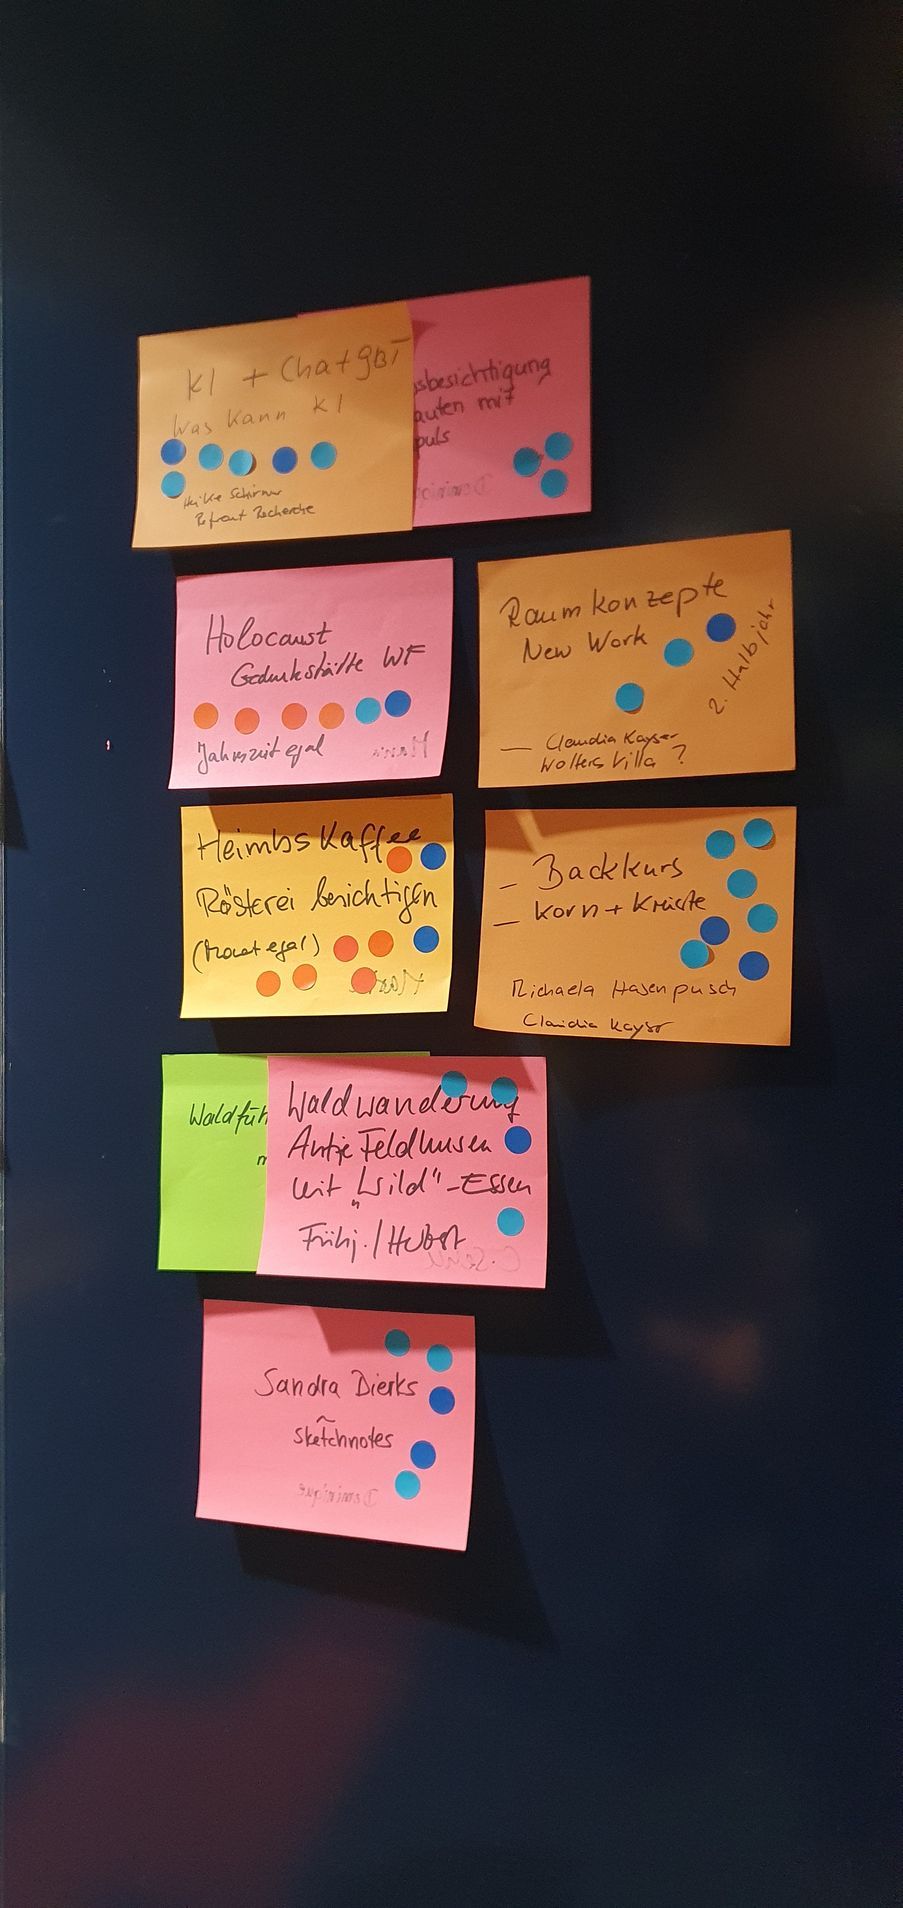 KI + ChatgBT
Was kann KI
Heike Schirmer
Refrent Recherche
sbesichtigung
auten mit
puls
Dominique
Holocaust
Gedenkstätte WF
Jahreszeit egal
Maria
Raumkonzepte
New Work
2. Halbjahr
— Claudia Kayser
Wolters Villa ?
Heimbs Kaffee
Rösterei besichtigen
(Monat egal)
Maria
– Backkurs
– Korn + Kruste
Michaela Hasenpusch
Claudia Kayser
Waldfüh
m
Waldwanderung
Antje Feldhusen
mit "Wild"-Essen
Frühj. / Herbst
Sandra Dierks
~
Sketchnotes
Dominique